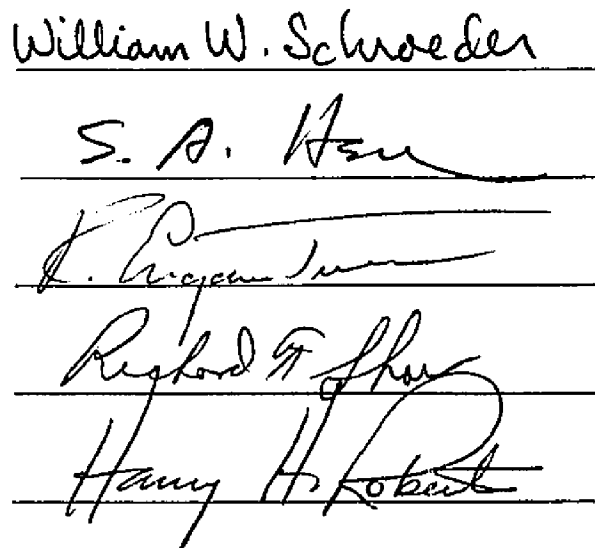 William W. Schroeder
S. A. Hsu
R. Eugene Turner
Richard F. Shaw
Harry H. Roberts